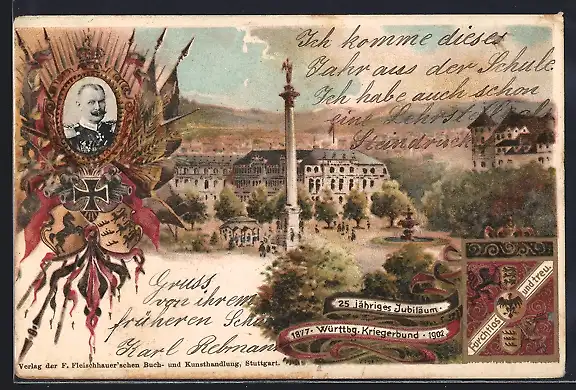 Ich komme dieses
Jahr aus der Schule
Ich habe auch schon
eine Lehrstelle als
Steindruck
Gruss
von ihrem
früheren Schü
Karl Rebmann
25 jähriges Jubiläum.
1877 · Württbg. Kriegerbund · 1902
furchtlos und treu.
Verlag der F. Fleischhauer'schen Buch- und Kunsthandlung, Stuttgart.